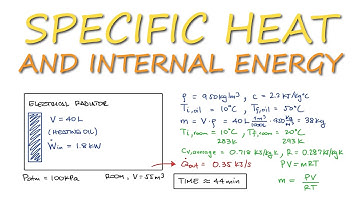 SPECIFIC HEAT
AND INTERNAL ENERGY
ELECTRICAL RADIATOR
V = 40L
(HEATING OIL)
Ẇin = 1.8 kW
Patm = 100kPa
ROOM, V = 55m³
ρ = 950 kg/m³, c = 2.2 kJ/kg°C
Ti,oil = 10°C, Tf,oil = 50°C
m = V·ρ = 40L · 1m³/1000L · 950 kg/m³ = 38kg
Ti,room = 10°C, Tf,room = 20°C
283K 293K
Cv,average = 0.718 kJ/kg·K, R = 0.287 kJ/kg·K
Q̇out = 0.35 kJ/s
PV = mRT
TIME ≈ 44 min
m = PV/RT